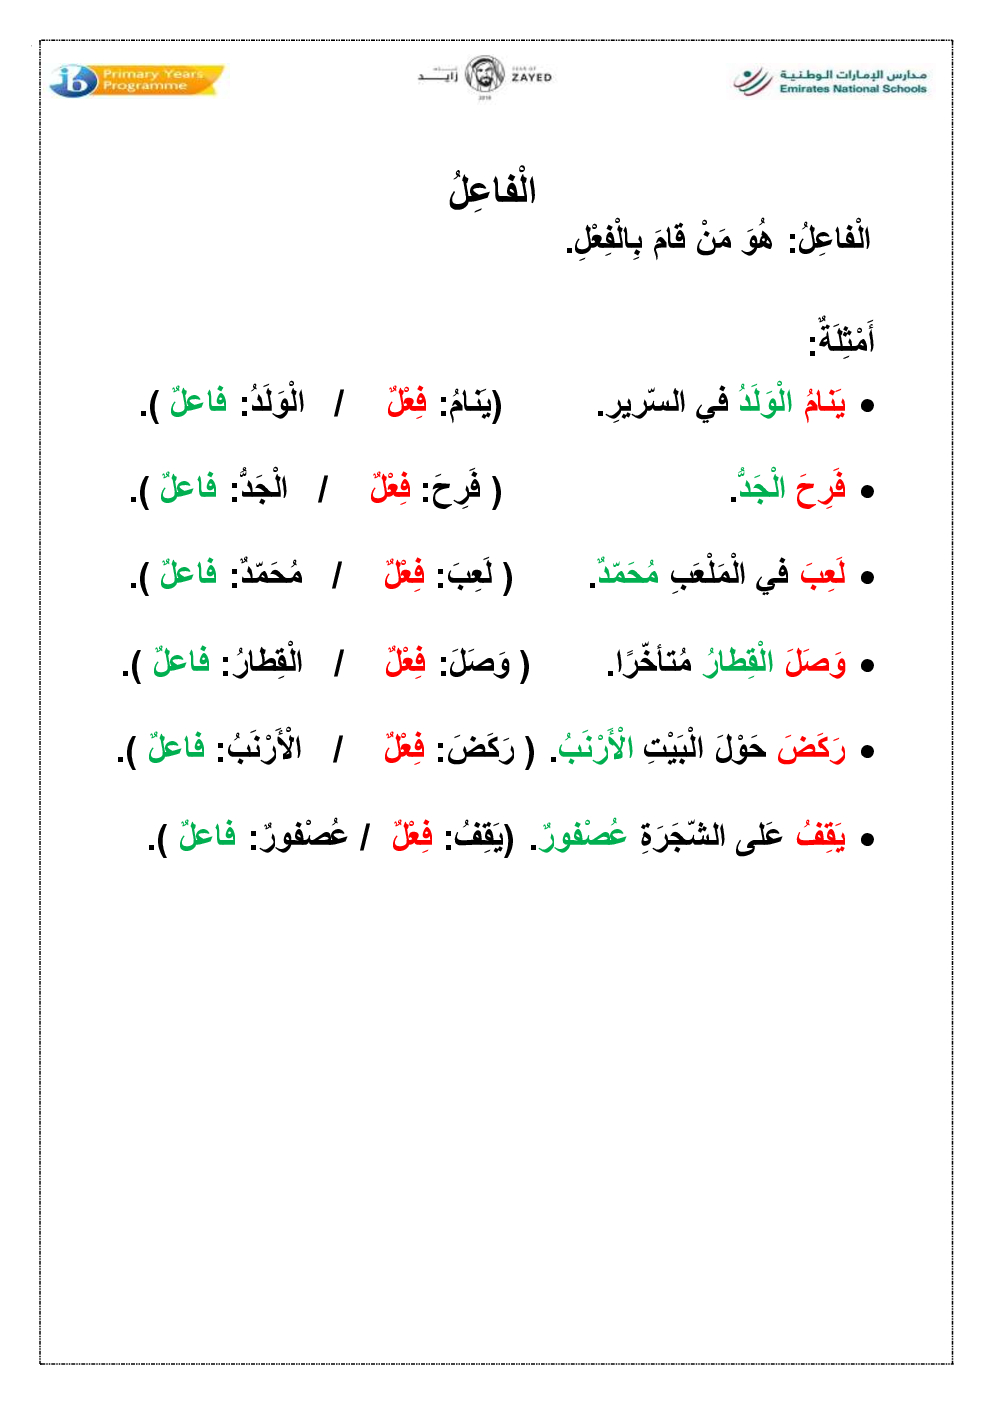 Primary Years
Programme
زايـــد
YEAR OF
ZAYED
2018
مدارس الإمارات الوطنية
Emirates National Schools
الْفاعِلُ
الْفاعِلُ: هُوَ مَنْ قامَ بِالْفِعْلِ.
أَمْثِلَةٌ:
• يَنامُ الْوَلَدُ في السّريرِ. (يَنامُ: فِعْلٌ / الْوَلَدُ: فاعلٌ ).
• فَرِحَ الْجَدُّ. ( فَرِحَ: فِعْلٌ / الْجَدُّ: فاعلٌ ).
• لَعِبَ في الْمَلْعَبِ مُحَمّدٌ. ( لَعِبَ: فِعْلٌ / مُحَمّدٌ: فاعلٌ ).
• وَصَلَ الْقِطارُ مُتأخّرًا. ( وَصَلَ: فِعْلٌ / الْقِطارُ: فاعلٌ ).
• رَكَضَ حَوْلَ الْبَيْتِ الْأَرْنَبُ. ( رَكَضَ: فِعْلٌ / الْأَرْنَبُ: فاعلٌ ).
• يَقِفُ عَلى الشّجَرَةِ عُصْفورٌ. (يَقِفُ: فِعْلٌ / عُصْفورٌ: فاعلٌ ).